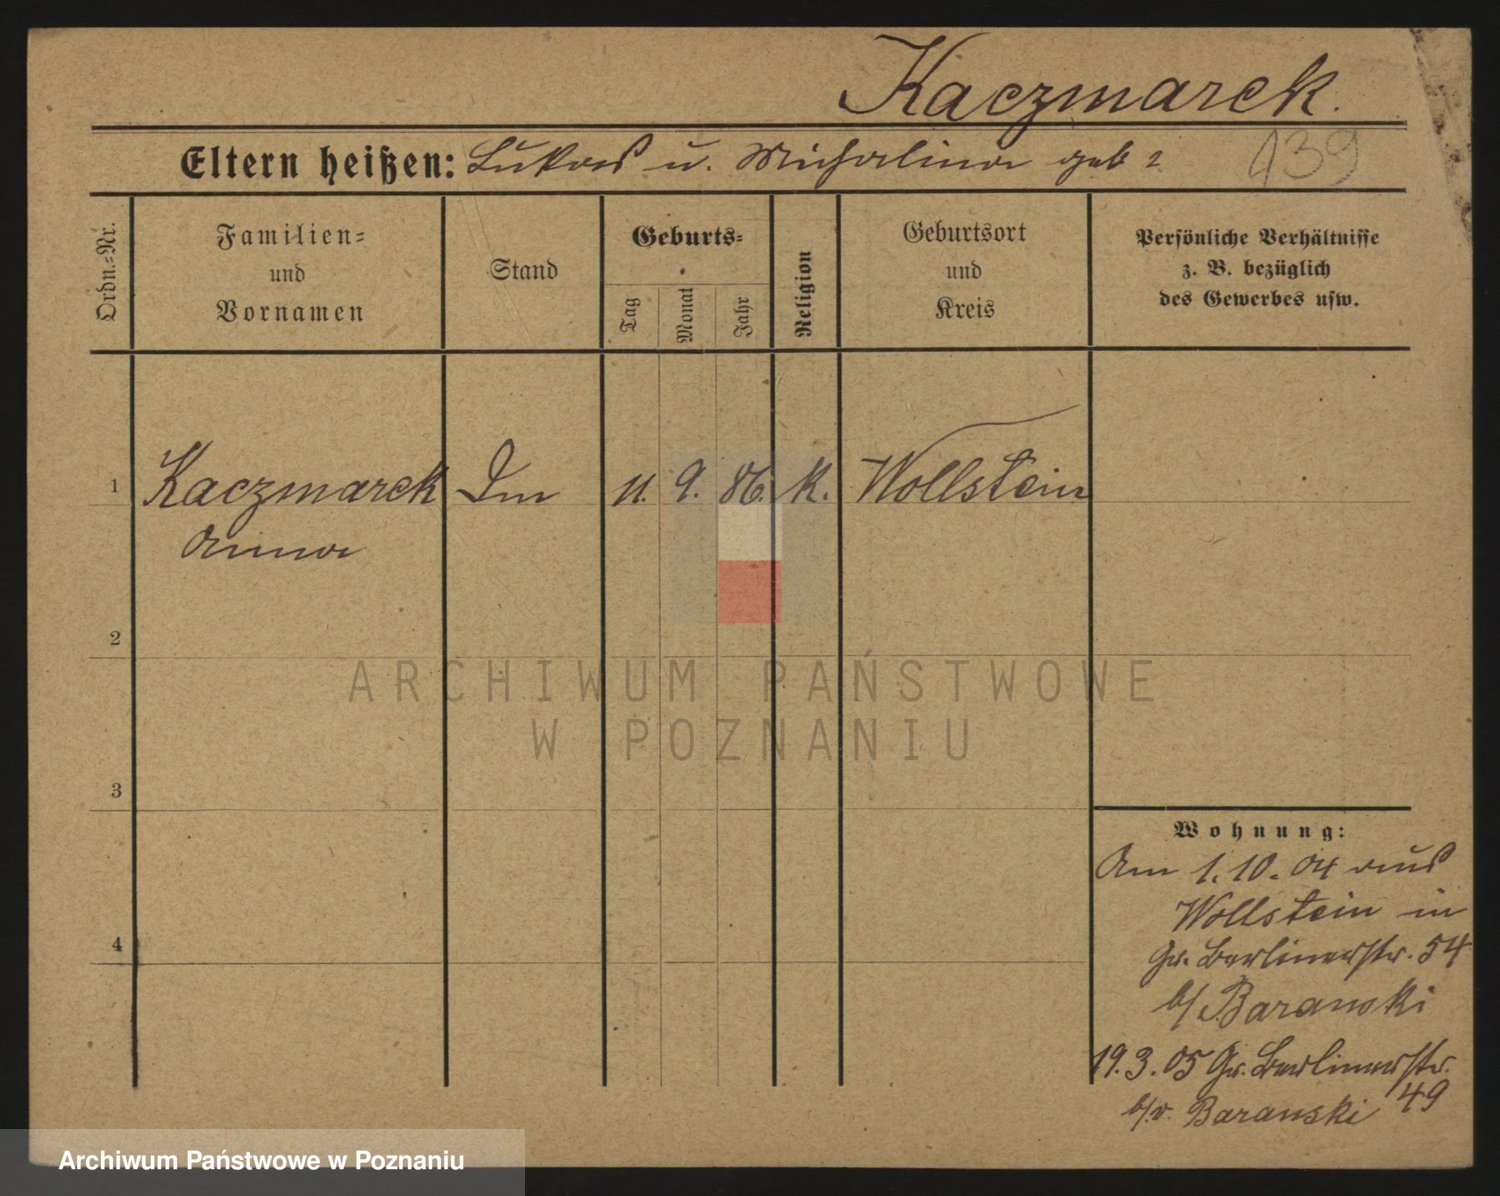 Kaczmarek.
Eltern heißen: Lukas u. Michalina geb ?
139
Ordn.=Nr.
Familien=
und
Vornamen
Stand
Geburts=
Tag
Monat
Jahr
Religion
Geburtsort
und
Kreis
Persönliche Verhältnisse
z. B. bezüglich
des Gewerbes usw.
1 Kaczmarek 11. 9. 86. K. Wollstein
Anna
2
ARCHIWUM PAŃSTWOWE
W POZNANIU
3
Wohnung:
Am 1.10.04 aus
Wollstein in
4
Gr. Berlinerstr. 54
b/ Baranski
19.3.05 Gr. Berlinerstr.
49
b/v. Baranski
Archiwum Państwowe w Poznaniu